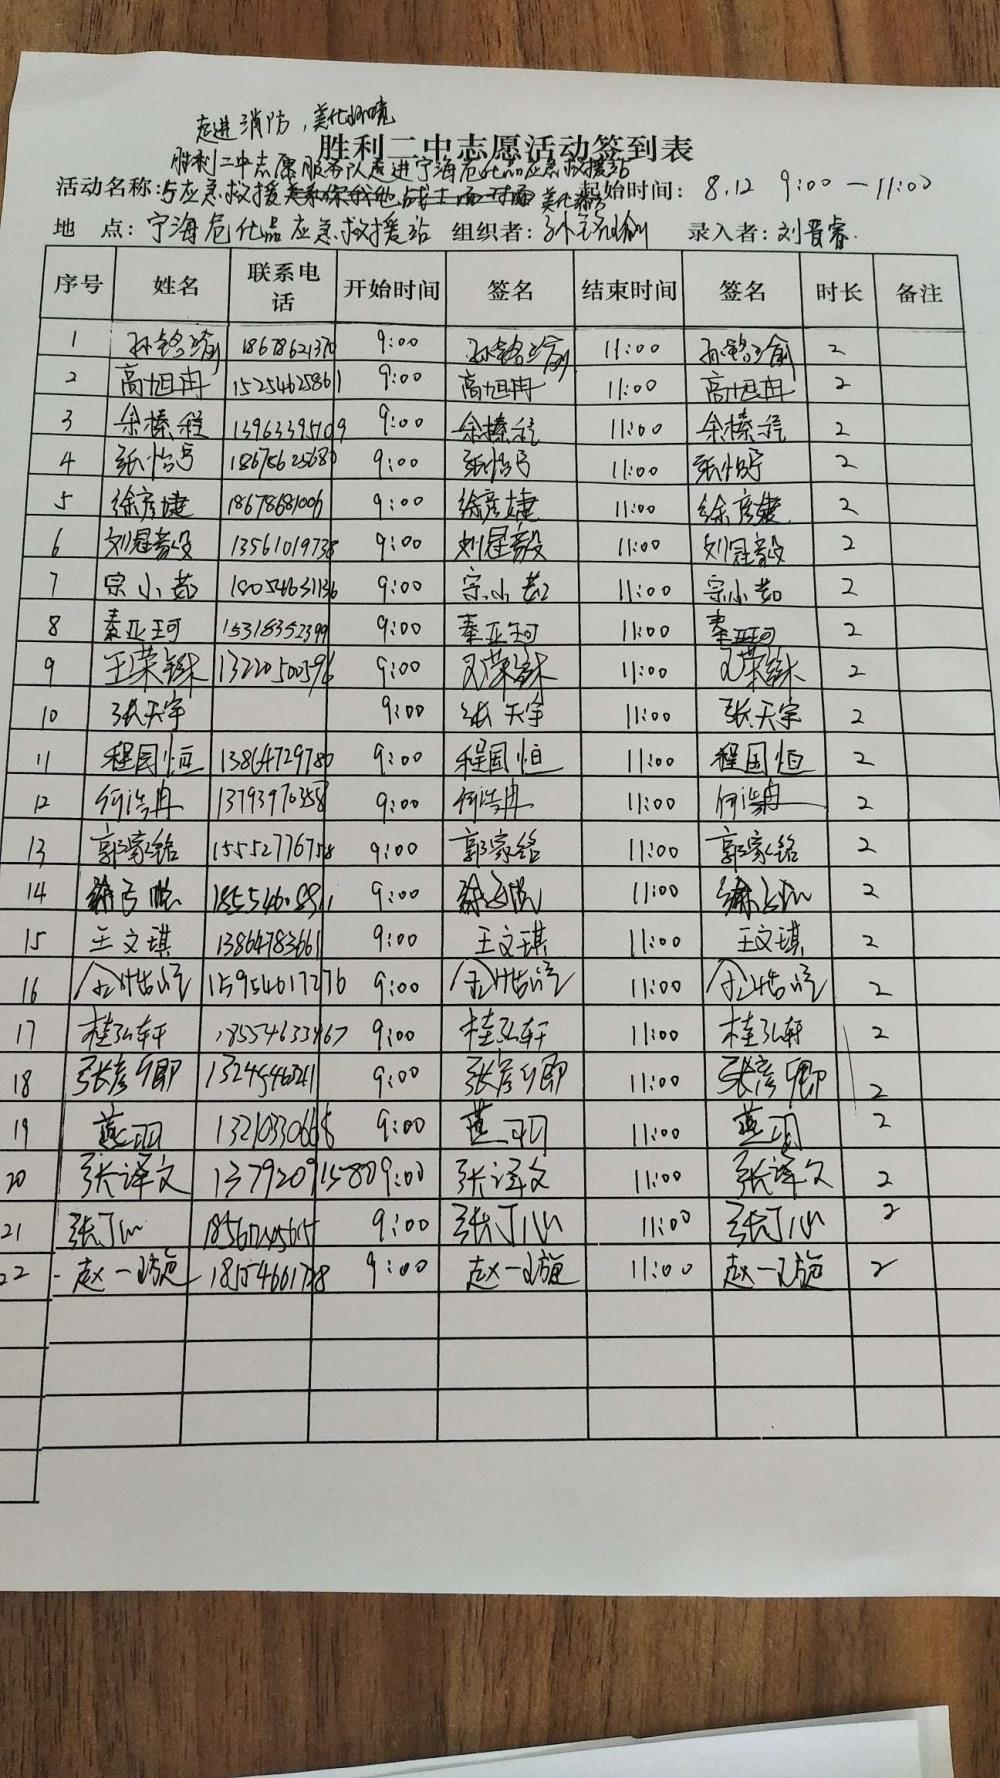 走进消防，美化环境
胜利二中志愿活动签到表
胜利二中志愿服务队走进宁海危化品应急救援站
活动名称：与应急救援 面对面 美化 起始时间： 8.12 9:00—11:00
地 点：宁海危化品应急救援站 组织者：孙铭瑜 录入者：刘晋睿
序号 姓名 联系电话 开始时间 签名 结束时间 签名 时长 备注
1 孙铭瑜 18678621370 9:00 孙铭瑜 11:00 孙铭瑜 2
2 高旭冉 15254625861 9:00 高旭冉 11:00 高旭冉 2
3 余榛程 13963395709 9:00 余榛程 11:00 余榛程 2
4 张怡 9:00 张怡 11:00 张怡 2
5 徐彦婕 18678681006 9:00 徐彦婕 11:00 徐彦婕 2
6 刘冠毅 13561019738 9:00 刘冠毅 11:00 刘冠毅 2
7 宗小茹 18054631136 9:00 宗小茹 11:00 宗小茹 2
8 秦亚珂 15318352399 9:00 秦亚珂 11:00 秦亚珂 2
9 王荣鉥 13220500596 9:00 王荣鉥 11:00 王荣鉥 2
10 张天宇 9:00 张天宇 11:00 张天宇 2
11 程国恒 13864729780 9:00 程国恒 11:00 程国恒 2
12 何浩冉 13793970358 9:00 何浩冉 11:00 何浩冉 2
13 郭家铭 15552776758 9:00 郭家铭 11:00 郭家铭 2
14 9:00 11:00 2
15 王文琪 13864783661 9:00 王文琪 11:00 王文琪 2
16 15954617276 9:00 11:00 2
17 桂弘轩 18554633467 9:00 桂弘轩 11:00 桂弘轩 2
18 张彦卿 9:00 张彦卿 11:00 张彦卿 2
19 燕羽 13210330668 9:00 燕羽 11:00 燕羽 2
20 张译文 13792091580 9:00 张译文 11:00 张译文 2
21 张丁心 9:00 张丁心 11:00 张丁心 2
22 赵一璇 18154661738 9:00 赵一璇 11:00 赵一璇 2